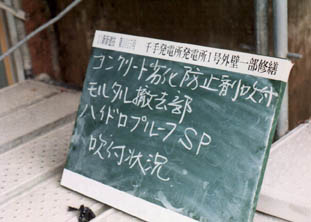 千手発電所発電所1号外壁一部修繕
コンクリート劣化防止剤吹付
モルタル撤去部
ハイドロプルーフSP
吹付状況